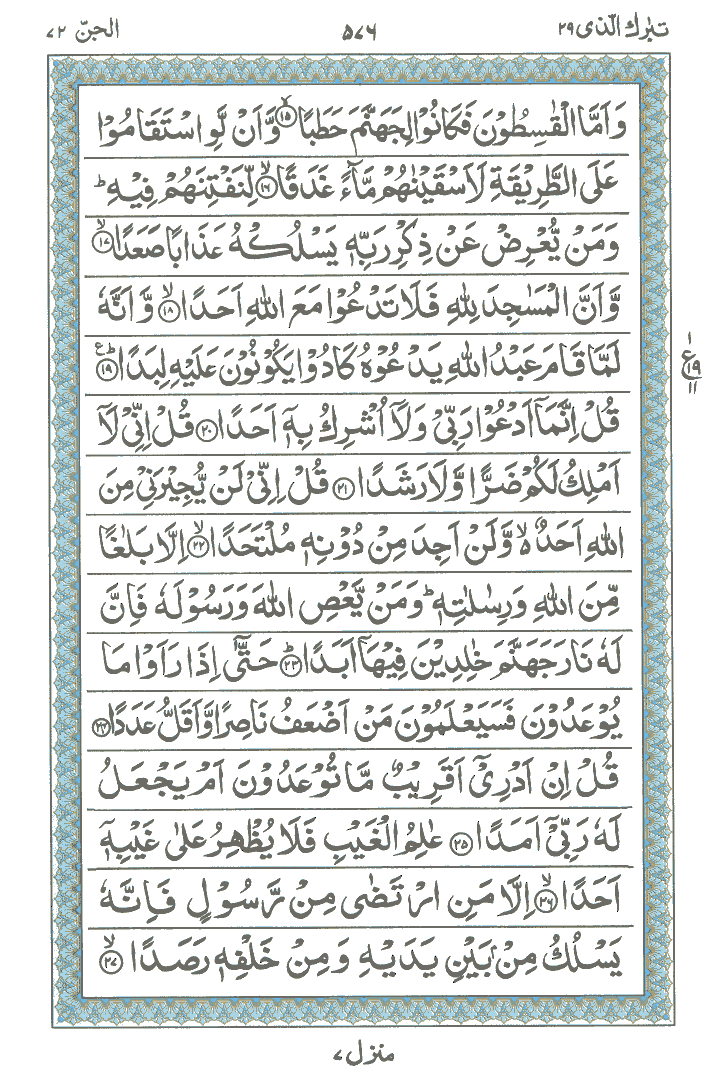 تبٰرك الّذى ٢٩
٥٧٦
الجنّ ٧٢
وَاَمَّا الْقٰسِطُوْنَ فَكَانُوْا لِجَهَنَّمَ حَطَبًا ۙ‏﴿۱۵﴾ وَّاَنْ لَّوِ اسْتَقَامُوْا
عَلَى الطَّرِيْقَةِ لَاَسْقَيْنٰهُمْ مَّآءً غَدَقًا ۙ‏﴿۱۶﴾ لِّنَفْتِنَهُمْ فِيْهِ ؕ
وَمَنْ يُّعْرِضْ عَنْ ذِكْرِ رَبِّهٖ يَسْلُكْهُ عَذَابًا صَعَدًا ۙ‏﴿۱۷﴾
وَّاَنَّ الْمَسٰجِدَ لِلّٰهِ فَلَا تَدْعُوْا مَعَ اللّٰهِ اَحَدًا ۙ‏﴿۱۸﴾ وَّاَنَّهٗ
لَمَّا قَامَ عَبْدُ اللّٰهِ يَدْعُوْهُ كَادُوْا يَكُوْنُوْنَ عَلَيْهِ لِبَدًا ؕ ع‏﴿۱۹﴾
١
ع ١٩
١١
قُلْ اِنَّمَاۤ اَدْعُوْا رَبِّىْ وَلَاۤ اُشْرِكُ بِهٖۤ اَحَدًا‏﴿۲۰﴾ قُلْ اِنِّىْ لَاۤ
اَمْلِكُ لَكُمْ ضَرًّا وَّلَا رَشَدًا‏﴿۲۱﴾ قُلْ اِنِّىْ لَنْ يُّجِيْرَنِىْ مِنَ
اللّٰهِ اَحَدٌ ۙ۬ وَّلَنْ اَجِدَ مِنْ دُوْنِهٖ مُلْتَحَدًا ۙ‏﴿۲۲﴾ اِلَّا بَلٰغًا
مِّنَ اللّٰهِ وَرِسٰلٰتِهٖ ؕ وَمَنْ يَّعْصِ اللّٰهَ وَرَسُوْلَهٗ فَاِنَّ
لَهٗ نَارَ جَهَنَّمَ خٰلِدِيْنَ فِيْهَاۤ اَبَدًا ؕ‏﴿۲۳﴾ حَتّٰٓى اِذَا رَاَوْا مَا
يُوْعَدُوْنَ فَسَيَعْلَمُوْنَ مَنْ اَضْعَفُ نَاصِرًا وَّاَقَلُّ عَدَدًا‏﴿۲۴﴾
قُلْ اِنْ اَدْرِىْۤ اَقَرِيْبٌ مَّا تُوْعَدُوْنَ اَمْ يَجْعَلُ
لَهٗ رَبِّىْۤ اَمَدًا‏﴿۲۵﴾ عٰلِمُ الْغَيْبِ فَلَا يُظْهِرُ عَلٰى غَيْبِهٖۤ
اَحَدًا ۙ‏﴿۲۶﴾ اِلَّا مَنِ ارْتَضٰى مِنْ رَّسُوْلٍ فَاِنَّهٗ
يَسْلُكُ مِنْۢ بَيْنِ يَدَيْهِ وَمِنْ خَلْفِهٖ رَصَدًا ۙ‏﴿۲۷﴾
منزل ٧